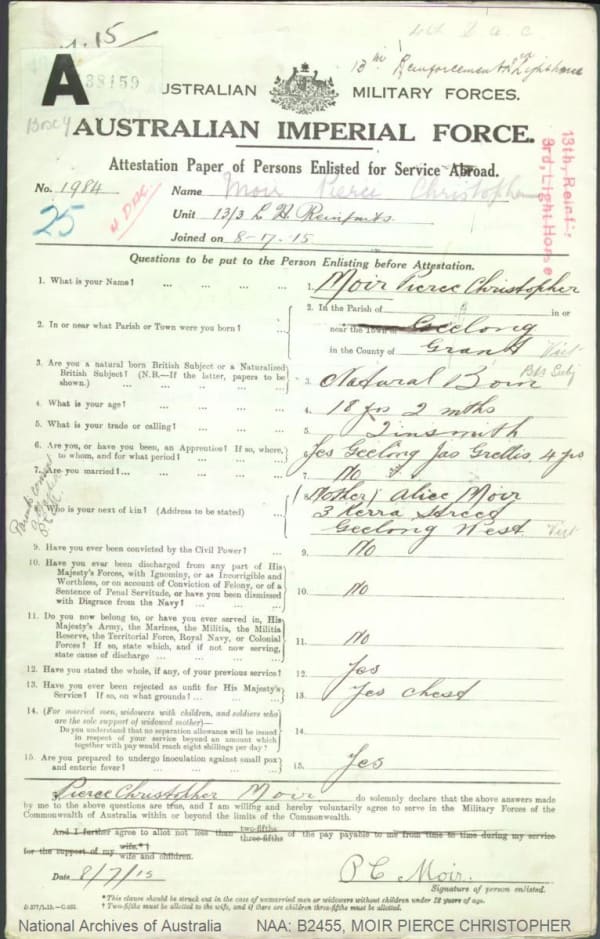 1.15
13th Reinforcements 3rd Lighthorse
A
38159
AUSTRALIAN MILITARY FORCES.
AUSTRALIAN IMPERIAL FORCE.
13th, Reinf.
3rd, Light Horse
Attestation Paper of Persons Enlisted for Service Abroad.
No. 1984 Name Moir Pierce Christopher
25
Unit 13/3 L H Reinfmts.
Joined on 8-7-15
Questions to be put to the Person Enlisting before Attestation.
1. What is your Name? ... ... ... 1. Moir Pierce Christopher
2. In or near what Parish or Town were you born? ... 2. In the Parish of in or
near the Town of Geelong
in the County of Grant Vict
3. Are you a natural born British Subject or a Naturalized
British Subject? (N.B.—If the latter, papers to be
shown.) ... ... ... ... 3. Natural Born Brit Subj
4. What is your age? ... ... ... 4. 18 yrs 2 mths
5. What is your trade or calling? ... ... 5. Tinsmith
6. Are you, or have you been, an Apprentice? If so, where,
to whom, and for what period? ... ... 6. Yes Geelong Jas 4 yrs
7. Are you married? ... ... ... ... 7. No
8. Who is your next of kin? (Address to be stated) ... 8. (Mother) Alice Moir
3 Street
Geelong West Vict
9. Have you ever been convicted by the Civil Power? ... 9. No
10. Have you ever been discharged from any part of His
Majesty's Forces, with Ignominy, or as Incorrigible and
Worthless, or on account of Conviction of Felony, or of a
Sentence of Penal Servitude, or have you been dismissed
with Disgrace from the Navy? ... ... ... 10. No
11. Do you now belong to, or have you ever served in, His
Majesty's Army, the Marines, the Militia, the Militia
Reserve, the Territorial Force, Royal Navy, or Colonial
Forces? If so, state which, and if not now serving,
state cause of discharge ... ... ... ... 11. No
12. Have you stated the whole, if any, of your previous service? 12. Yes
13. Have you ever been rejected as unfit for His Majesty's
Service? If so, on what grounds? ... ... 13. Yes chest
14. (For married men, widowers with children, and soldiers who
are the sole support of widowed mother)—
Do you understand that no separation allowance will be issued
in respect of your service beyond an amount which
together with pay would reach eight shillings per day? 14.
15. Are you prepared to undergo inoculation against small pox
and enteric fever? ... ... ... 15. Yes
I, Pierce Christopher Moir do solemnly declare that the above answers made
by me to the above questions are true, and I am willing and hereby voluntarily agree to serve in the Military Forces of the
Commonwealth of Australia within or beyond the limits of the Commonwealth.
And I further agree to allot not less than two-fifths three-fifths of the pay payable to me from time to time during my service
for the support of my wife.*† wife and children.
Date 8/7/15 P C Moir.
Signature of person enlisted.
* This clause should be struck out in the case of unmarried men or widowers without children under 18 years of age.
† Two-fifths must be allotted to the wife, and if there are children three-fifths must be allotted.
National Archives of Australia NAA: B2455, MOIR PIERCE CHRISTOPHER